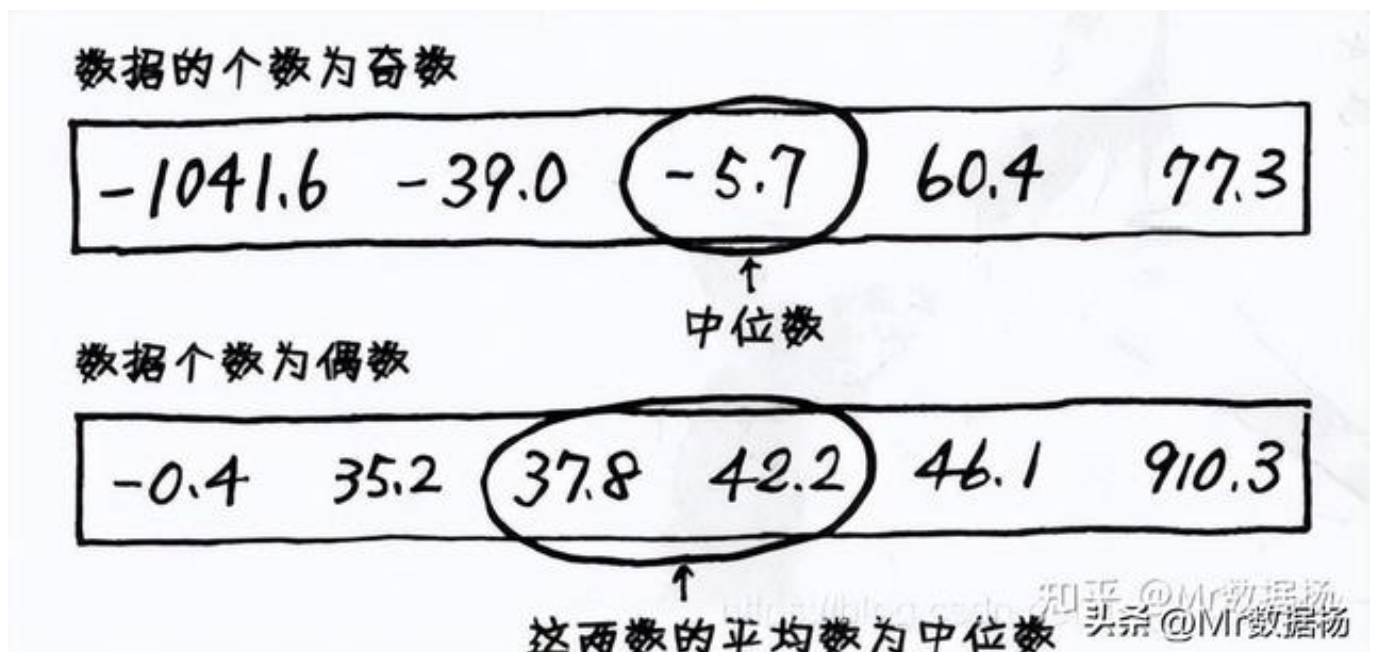 数据的个数为奇数
-1041.6 -39.0 -5.7 60.4 77.3
↑
中位数
数据个数为偶数
-0.4 35.2 37.8 42.2 46.1 910.3
↑
这两数的平均数为中位数
知乎 @Mr数据杨
头条 @Mr数据杨